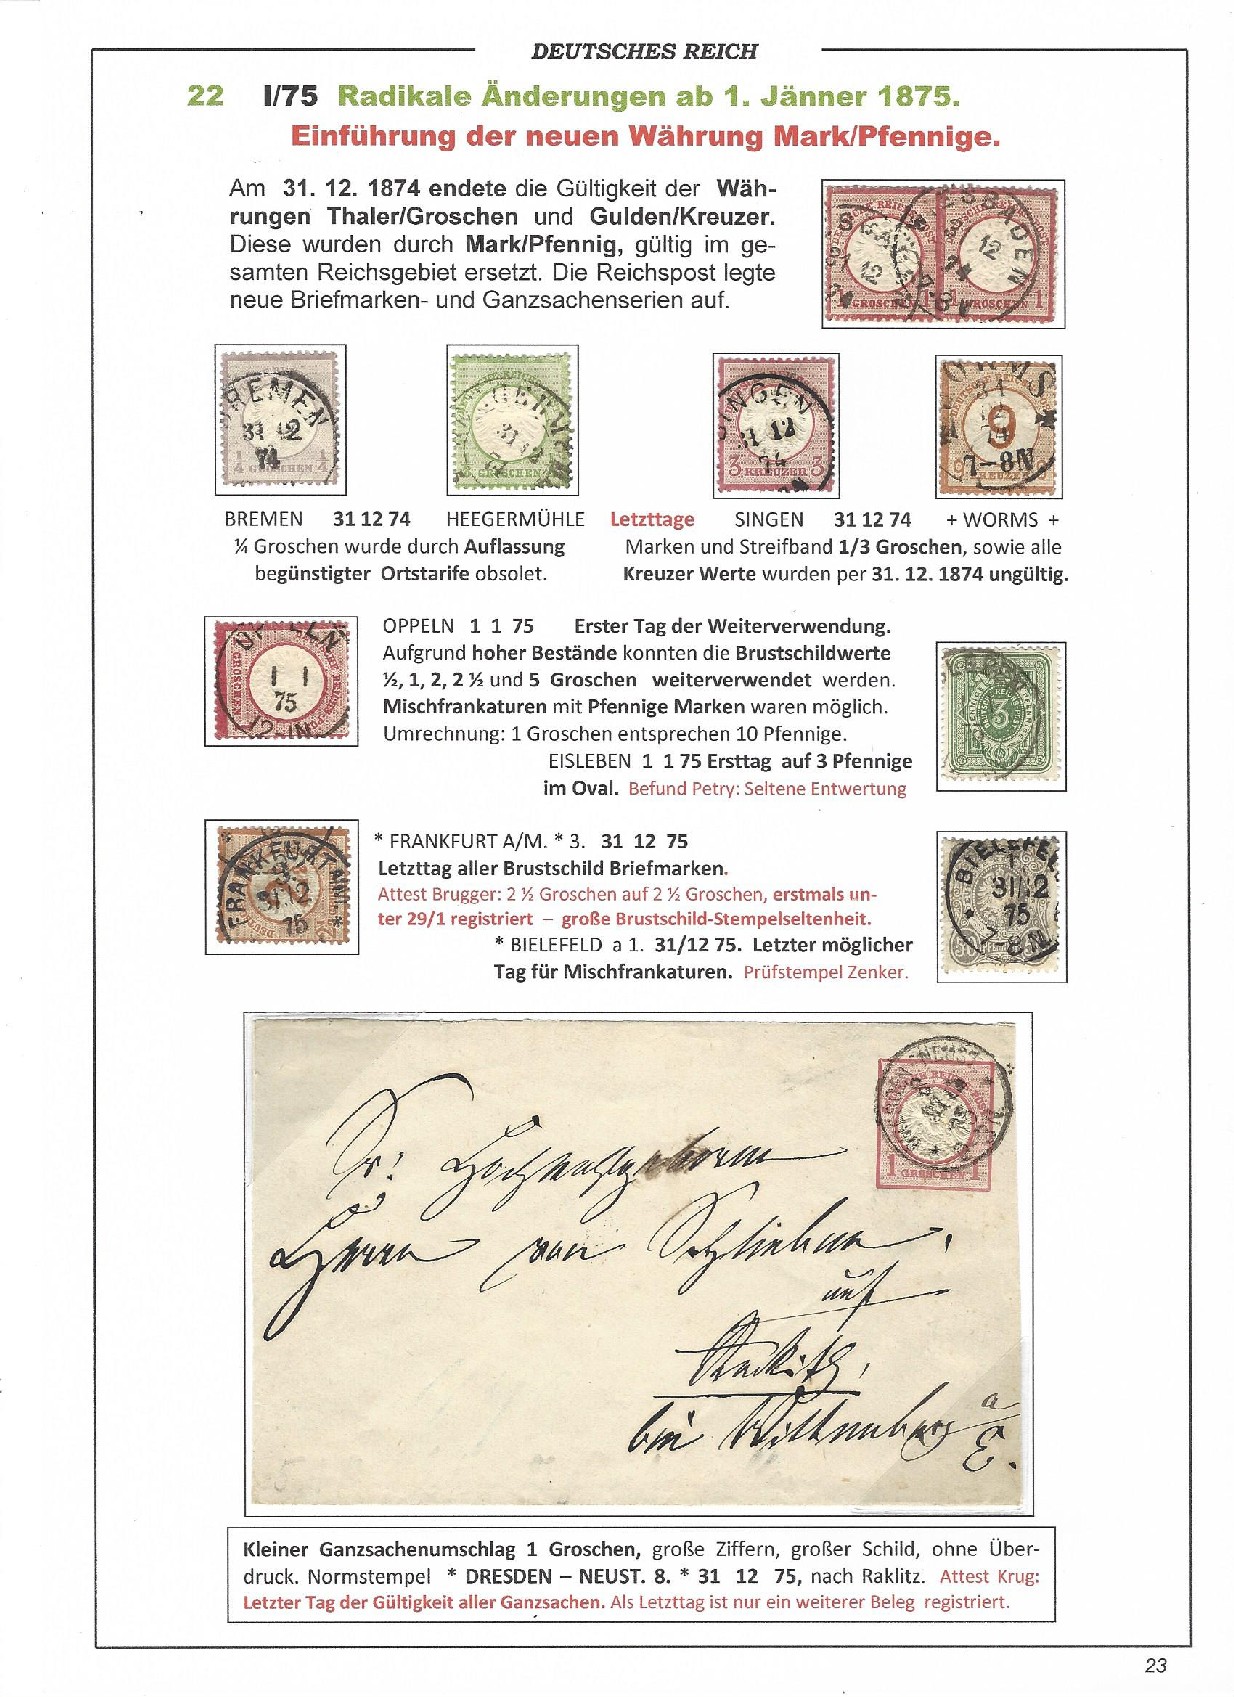 DEUTSCHES REICH
22 I/75 Radikale Änderungen ab 1. Jänner 1875.
Einführung der neuen Währung Mark/Pfennige.
Am 31. 12. 1874 endete die Gültigkeit der Wäh-
rungen Thaler/Groschen und Gulden/Kreuzer.
Diese wurden durch Mark/Pfennig, gültig im ge-
samten Reichsgebiet ersetzt. Die Reichspost legte
neue Briefmarken- und Ganzsachenserien auf.
GROSCHEN 1
BREMEN
31 12
74
1/4 GROSCHEN 1/4
31 12
GROSCHEN
SINGEN
31 12
74
3 KREUZER 3
ORMS
9
7-8N
BREMEN 31 12 74 HEEGERMÜHLE Letzttage SINGEN 31 12 74 + WORMS +
¼ Groschen wurde durch Auflassung
begünstigter Ortstarife obsolet.
Marken und Streifband 1/3 Groschen, sowie alle
Kreuzer Werte wurden per 31. 12. 1874 ungültig.
1 1
75
OPPELN 1 1 75 Erster Tag der Weiterverwendung.
Aufgrund hoher Bestände konnten die Brustschildwerte
½, 1, 2, 2 ½ und 5 Groschen weiterverwendet werden.
Mischfrankaturen mit Pfennige Marken waren möglich.
Umrechnung: 1 Groschen entsprechen 10 Pfennige.
EISLEBEN 1 1 75 Ersttag auf 3 Pfennige
im Oval. Befund Petry: Seltene Entwertung
3
FRANKFURT A/M.
31 12
75
* FRANKFURT A/M. * 3. 31 12 75
Letzttag aller Brustschild Briefmarken.
Attest Brugger: 2 ½ Groschen auf 2 ½ Groschen, erstmals un-
ter 29/1 registriert – große Brustschild-Stempelseltenheit.
* BIELEFELD a 1. 31/12 75. Letzter möglicher
Tag für Mischfrankaturen. Prüfstempel Zenker.
BIELEFEL
31 12
75
7-8N
1 GROSCHEN 1
Sr. Hochwohlgeboren
Herrn von Schlieben
auf
Rackitz,
bei Wittenberg a/E.
Kleiner Ganzsachenumschlag 1 Groschen, große Ziffern, großer Schild, ohne Über-
druck. Normstempel * DRESDEN – NEUST. 8. * 31 12 75, nach Raklitz. Attest Krug:
Letzter Tag der Gültigkeit aller Ganzsachen. Als Letzttag ist nur ein weiterer Beleg registriert.
23